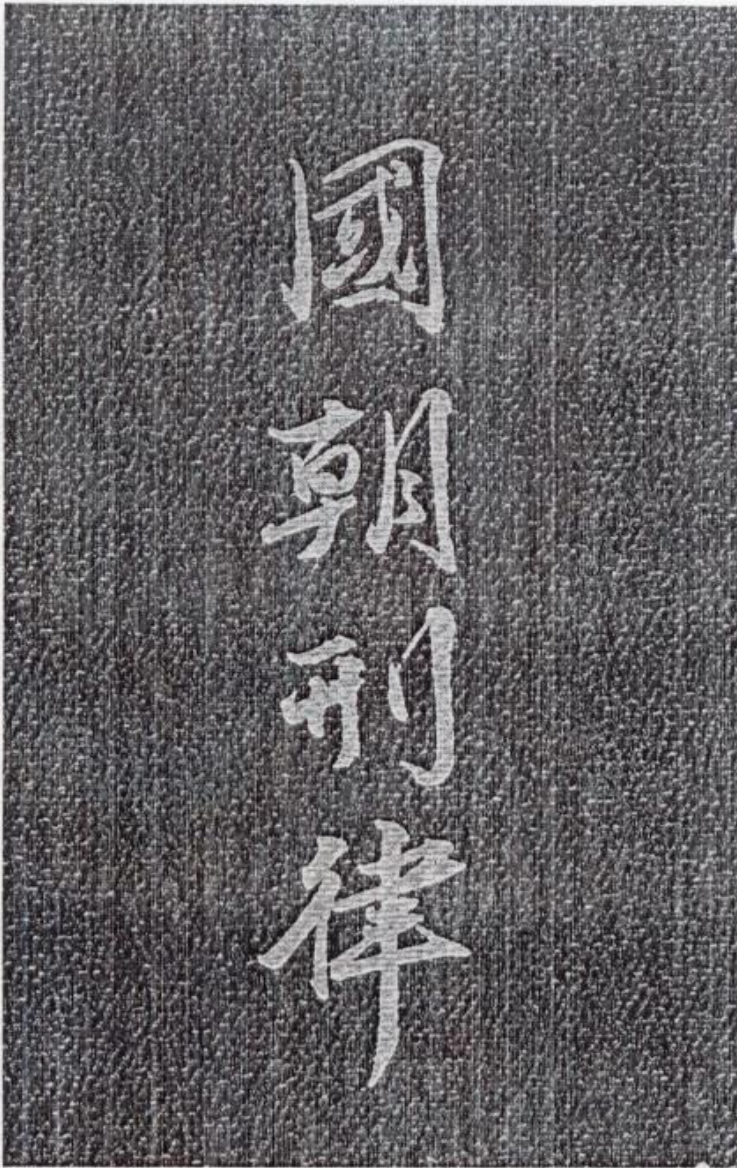 國朝刑律